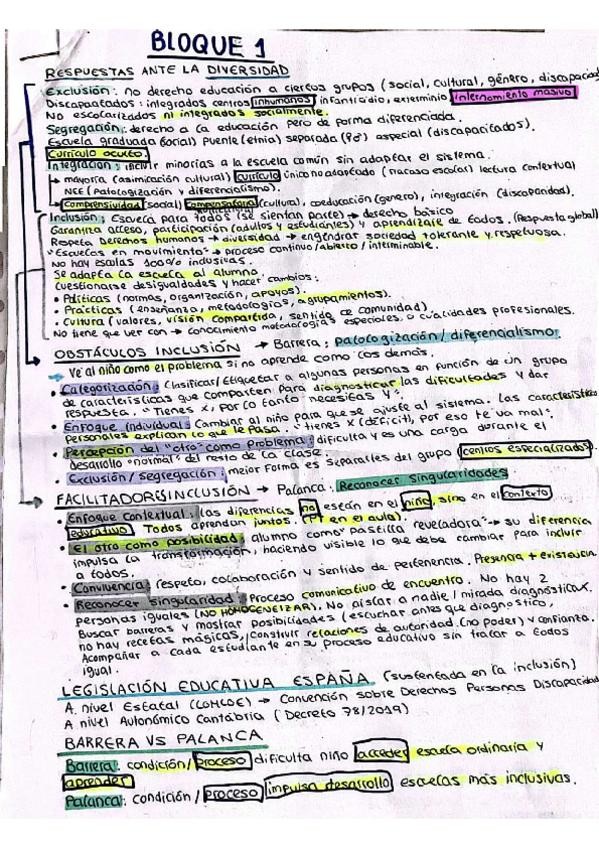 BLOQUE 1
RESPUESTAS ANTE LA DIVERSIDAD
Exclusión: no derecho educación a ciertos grupos (social, cultural, género, discapacidad
Discapacitados: integrados centros inhumanos infanticidio, exterminio, internamiento masivo
No escolarizados ni integrados socialmente.
Segregación: derecho a la educación pero de forma diferenciada.
Escuela graduada (social) Puente (etnia) separada (♀♂) especial (discapacitados).
Currículo oculto
Integración: incluir minorías a la escuela común sin adaptar el sistema.
→ mayoría (asimilación cultural) currículo único no adaptado (fracaso escolar) lectura contextual
NEE (Patologización y diferencialismo).
→ Comprensividad (social) Compensatoria (cultural), coeducación (género), integración (discapacidad).
Inclusión: Escuela para todos (se sientan parte) → derecho básico
Garantiza acceso, participación (adultos y estudiantes) y aprendizaje de todos. (Respuesta global)
Respeta Derechos humanos → diversidad → engendrar sociedad tolerante y respetuosa.
"Escuelas en movimiento" → proceso continuo/abierto/interminable.
No hay escuelas 100% inclusivas.
Se adapta la escuela al alumno.
Cuestionarse desigualdades y hacer cambios:
• Políticas (normas, organización, apoyos).
• Prácticas (enseñanza, metodologías, agrupamientos).
• Cultura (valores, visión compartida, sentido de comunidad)
No tiene que ver con → conocimiento metodologías especiales, o cualidades profesionales.
OBSTÁCULOS INCLUSIÓN → Barrera: patologización/diferencialismo
→ Ve al niño como el problema si no aprende como los demás.
• Categorización: Clasificar/Etiquetar a algunas personas en función de un grupo
de características que comparten para diagnosticar las dificultades y dar
respuesta. "Tienes x, por lo tanto necesitas y".
• Enfoque individual: Cambiar al niño para que se ajuste al sistema. Las características
personales explican lo que le pasa. "Tienes x (déficit), por eso te va mal".
• Percepción del "otro" como problema: dificulta y es una carga durante el
desarrollo "normal" del resto de la clase.
• Exclusión/Segregación: mejor forma es separarles del grupo (centros especializados).
FACILITADORES INCLUSIÓN → Palanca: Reconocer Singularidades
• Enfoque Contextual: las diferencias no están en el niño, sino en el contexto
educativo. Todos aprendan juntos. (PT en el aula).
• El otro como posibilidad: alumno como "pastilla reveladora" → su diferencia
impulsa la transformación, haciendo visible lo que debe cambiar para incluir
a todos.
• Convivencia: respeto, colaboración y sentido de pertenencia. Presencia + existencia
• Reconocer Singularidad: Proceso comunicativo de encuentro. No hay 2
personas iguales (NO HOMOGENEIZAR). No aislar a nadie/mirada diagnóstica x.
Buscar barreras y mostrar posibilidades (escuchar antes que diagnostico,
no hay recetas mágicas, construir relaciones de autoridad (no poder) y confianza.
Acompañar a cada estudiante en su proceso educativo sin tratar a todos
igual.
LEGISLACIÓN EDUCATIVA ESPAÑA (sustentada en la inclusión)
A nivel Estatal (LOMLOE) → Convención sobre Derechos Personas Discapacidad
A nivel Autonómico Cantabria (Decreto 78/2019)
BARRERA VS PALANCA
Barrera: condición/proceso dificulta niño acceder escuela ordinaria y
aprender
Palanca: condición/proceso impulsa desarrollo escuelas más inclusivas.